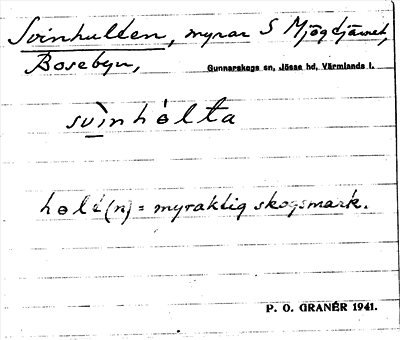 Svinhulten, myrar S Mjögtjärnet,
Bosebyn, Gunnarskogs sn, Jösse hd, Värmlands l.
svìnhɵ̀lta
hɵlt(n) = myraktig skogsmark.
P. O. GRANÉR 1941.